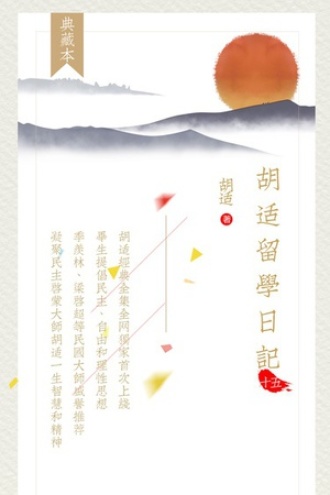 典藏本
胡适留學日記
十五
胡适
著
胡适經典全集全网獨家首次上綫
畢生提倡民主、自由和理性思想
季羨林、梁啓超等民國大師感譽推荐
凝聚民主啓蒙大師胡适一生智慧和精神